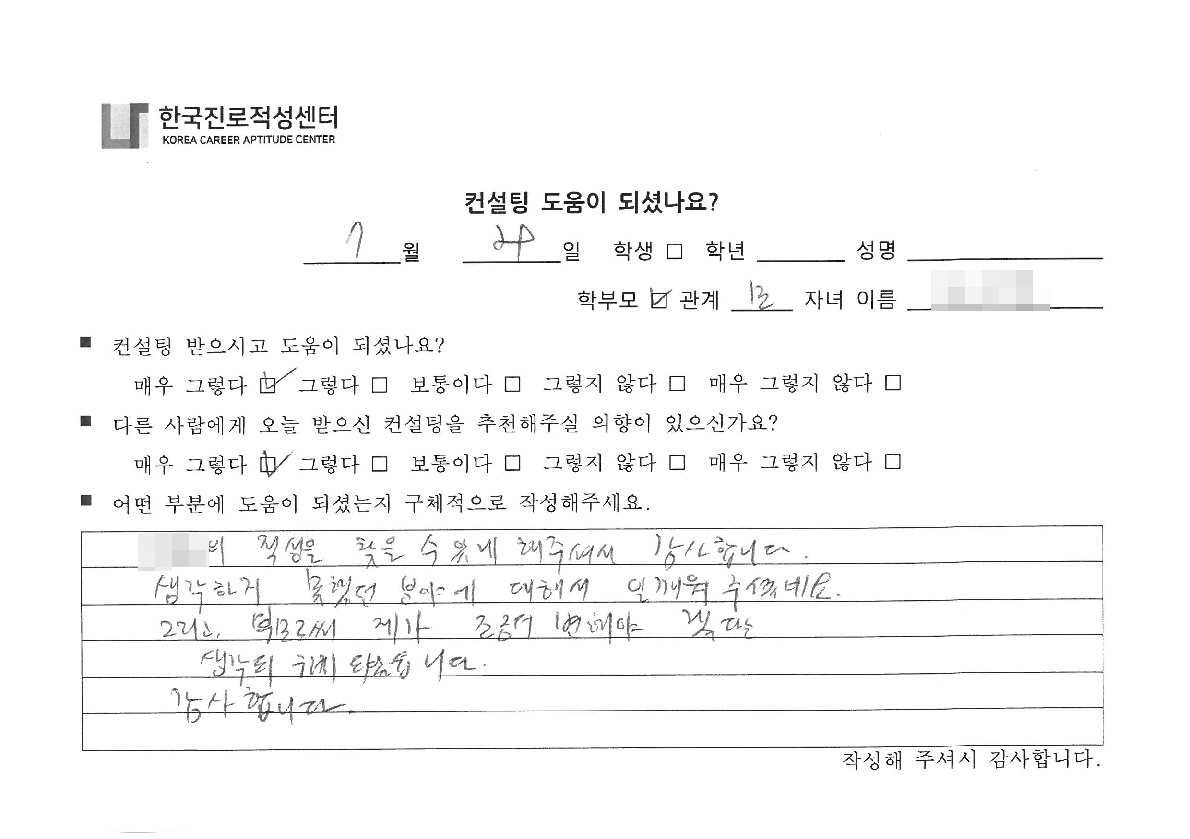 한국진로적성센터
KOREA CAREER APTITUDE CENTER
컨설팅 도움이 되셨나요?
7 월 24 일 학생 □ 학년 성명
학부모 ☑ 관계 모 자녀 이름
■ 컨설팅 받으시고 도움이 되셨나요?
매우 그렇다 ☑ 그렇다 □ 보통이다 □ 그렇지 않다 □ 매우 그렇지 않다 □
■ 다른 사람에게 오늘 받으신 컨설팅을 추천해주실 의향이 있으신가요?
매우 그렇다 ☑ 그렇다 □ 보통이다 □ 그렇지 않다 □ 매우 그렇지 않다 □
■ 어떤 부분에 도움이 되셨는지 구체적으로 작성해주세요.
적성을 찾을 수 있게 해주셔서 감사합니다.
생각하지 못했던 분야에 대해서 일깨워 주셨네요.
그리고, 부모로써 제가 조금더 변해야 겠다는
생각되 하게 되었습니다.
감사합니다.
작성해 주셔서 감사합니다.